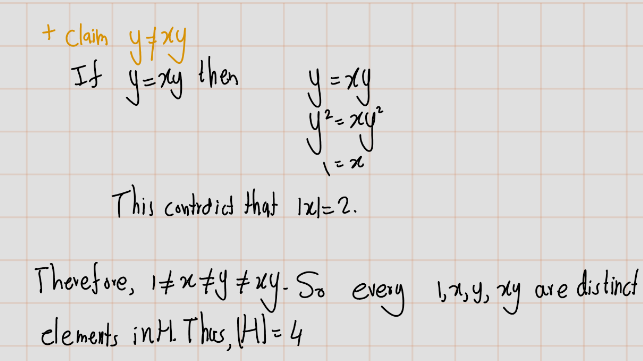 + Claim y≠xy
If y=xy then y=xy
y²=xy²
1=x
This contrdict that |x|=2.
Therefore, 1≠x≠y≠xy. So every 1,x,y,xy are distinct
elements in H. Thus, |H|=4